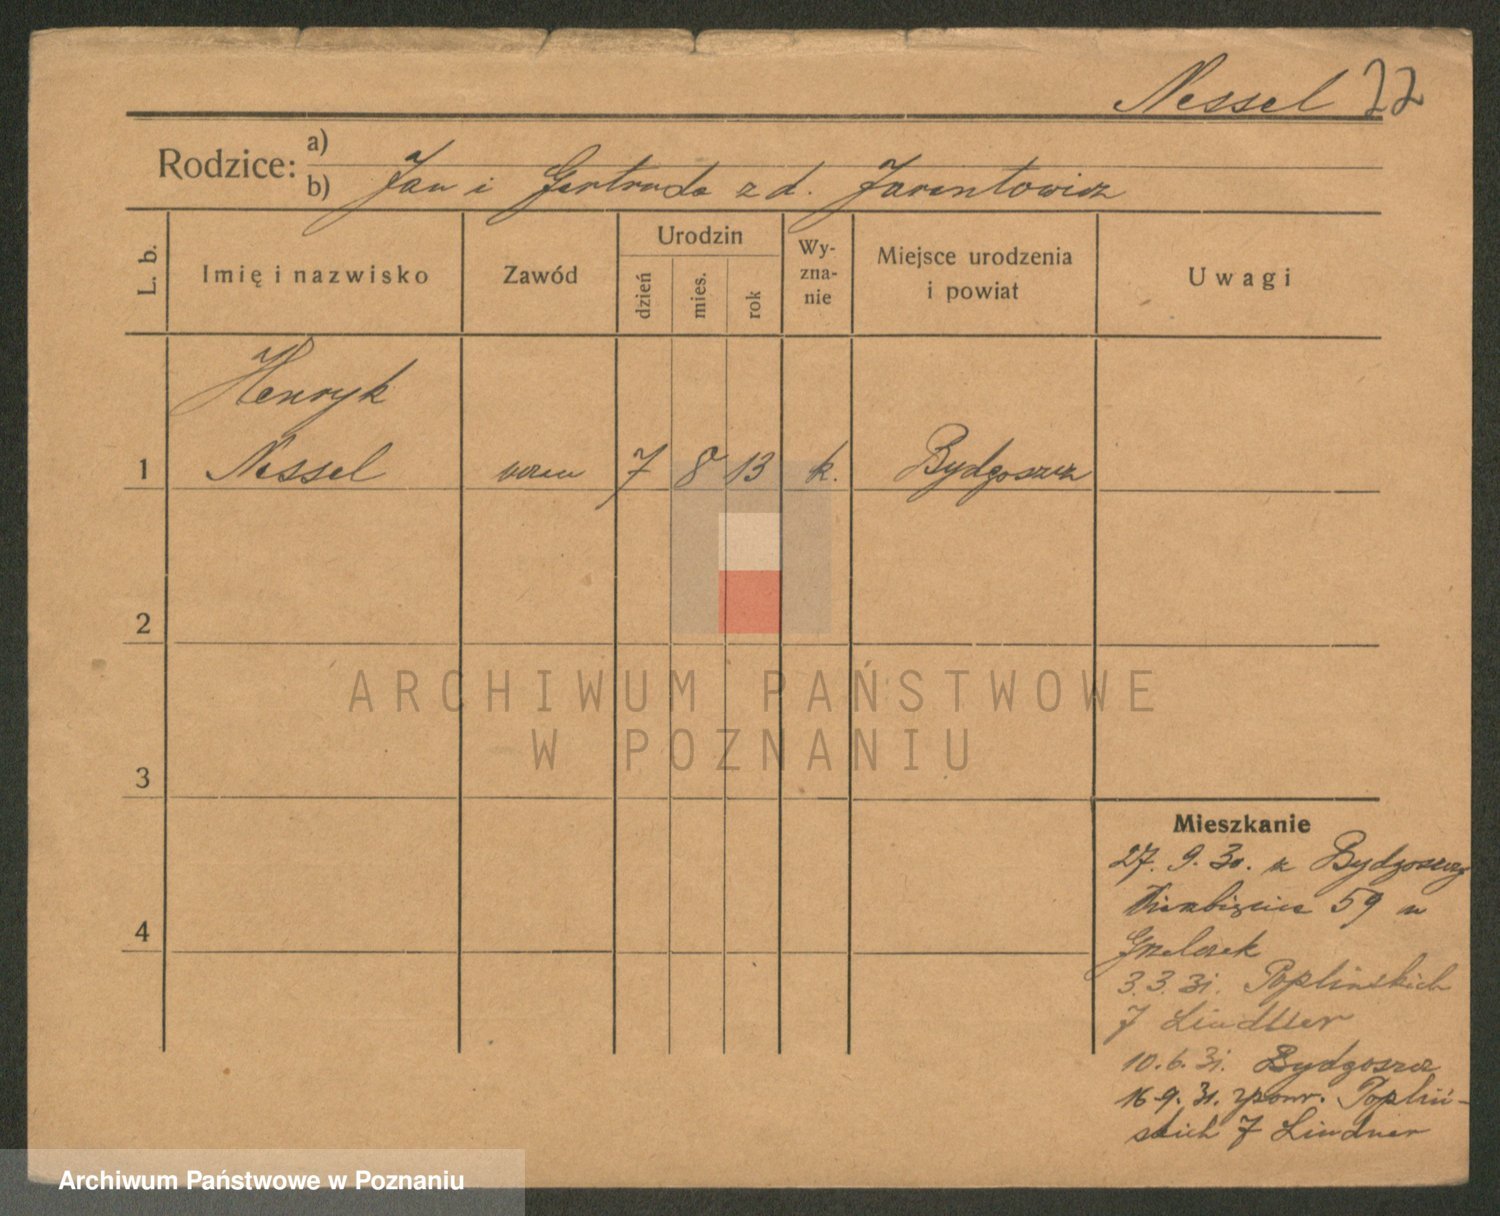 Nessel 22
Rodzice: a)
b) Jan i Gertruda z d. Jarentowicz
L. b.
Imię i nazwisko
Zawód
Urodzin
dzień
mies.
rok
Wy-
zna-
nie
Miejsce urodzenia
i powiat
Uwagi
Henryk
1 Nessel uczeń 7 8 13 k. Bydgoszcz
2
3
4
ARCHIWUM PAŃSTWOWE
W POZNANIU
Mieszkanie
27. 9. 30. z Bydgoszczy
59 u
Grelczek
3. 3. 31. Poplińskich
7 Lindner
10. 6. 31. Bydgoszcz
16. 9. 31. zpowr. Popliń-
skich 7 Lindner
Archiwum Państwowe w Poznaniu